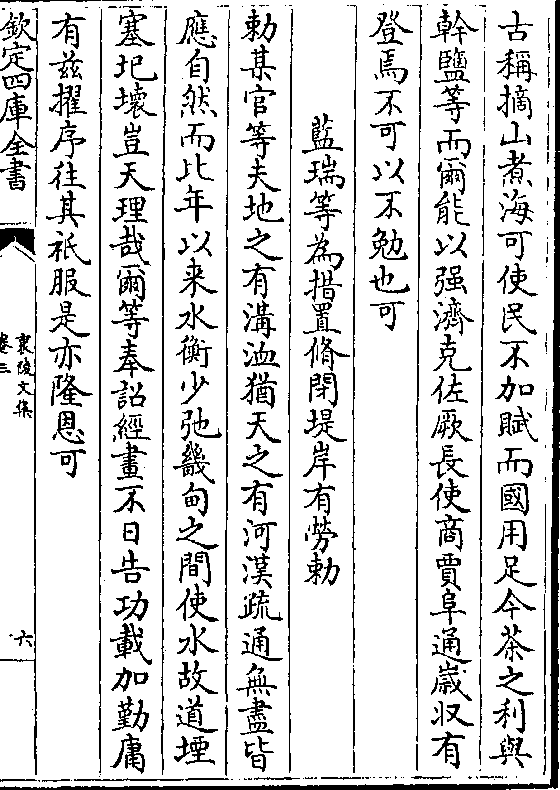 古稱摘山煮海可使民不加賦而國用足今茶之利與
幹鹽等而爾能以强濟克佐厥長使商賈阜通歳収有
登焉不可以不勉也可
藍瑞等為措置脩閉堤岸有勞勅
勅某官等夫地之有溝洫猶天之有河漢疏通無盡皆
應自然而比年以来水衡少弛畿甸之間使水故道堙
塞圮壊豈天理哉爾等奉詔經畫不日告功載加勤庸
有兹擢序往其祇服是亦隆恩可
欽定四庫全書
襄陵文集
卷三
六